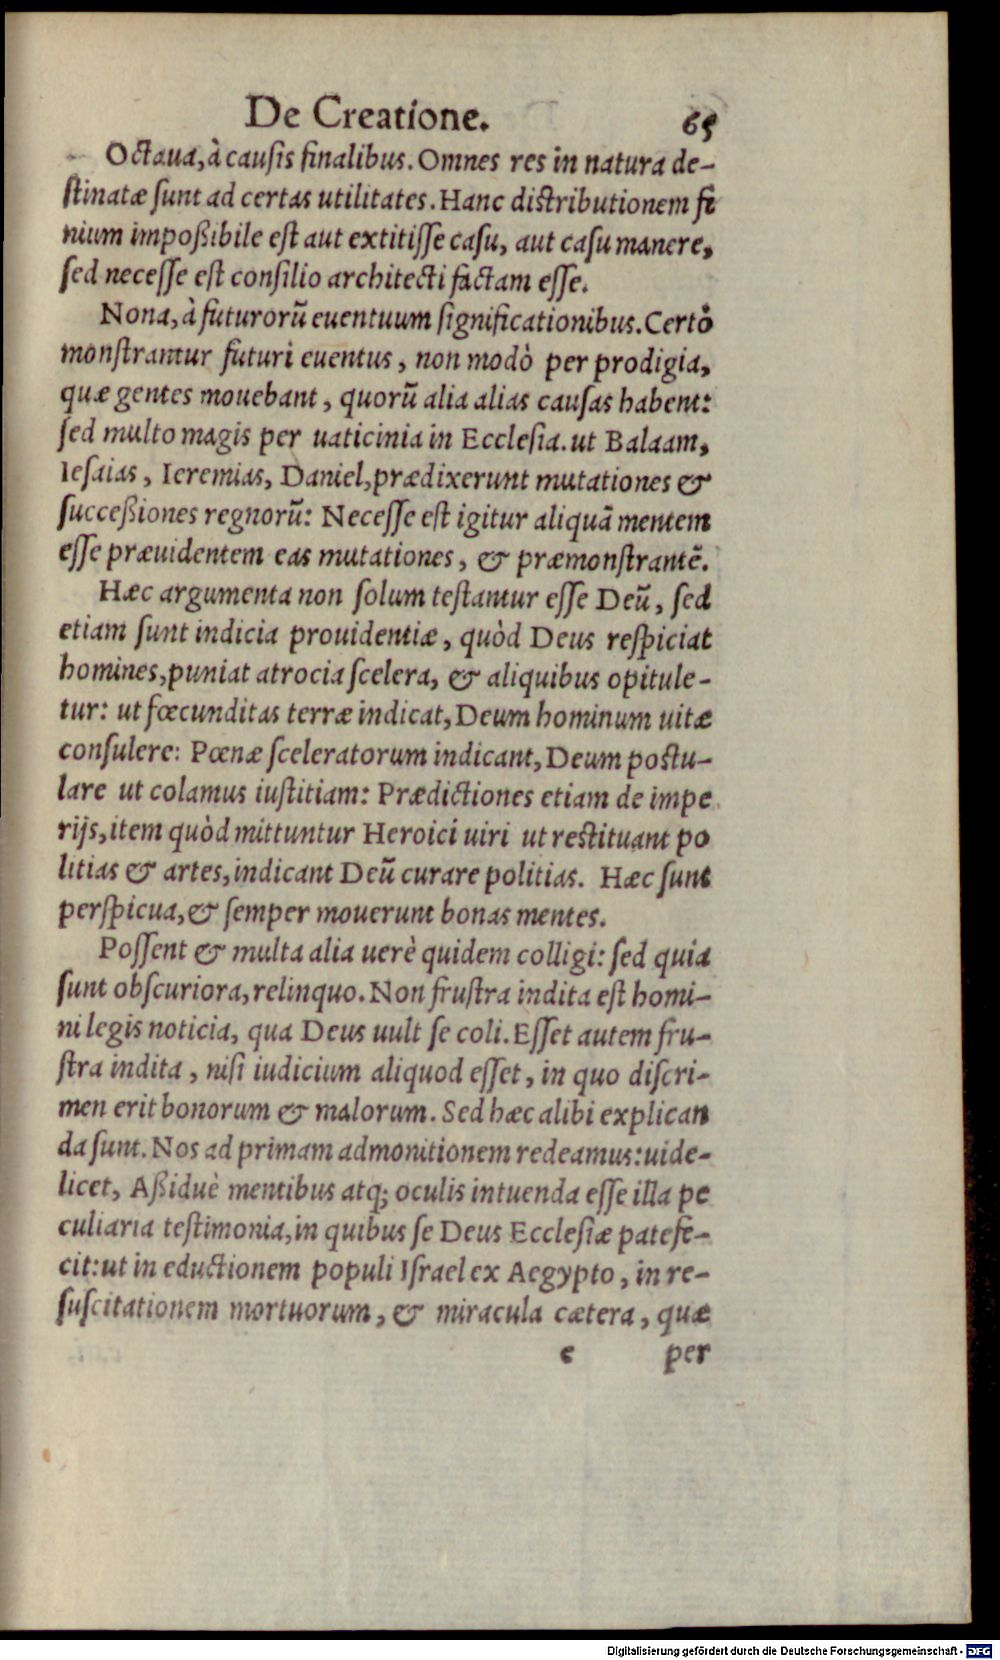 De Creatione. 65
Octaua, à cauſis finalibus. Omnes res in natura de-
ſtinatæ ſunt ad certas utilitates. Hanc diſtributionem fi
nium impoßibile eſt aut extitiſſe caſu, aut caſu manere,
ſed neceſſe eſt conſilio architecti factam eſſe.
Nona, à futurorũ euentuum ſignificationibus. Certò
monſtrantur futuri euentus, non modò per prodigia,
quæ gentes mouebant, quorũ alia alias cauſas habent:
ſed multo magis per uaticinia in Eccleſia. ut Balaam,
Ieſaias, Ieremias, Daniel, prædixerunt mutationes &
ſucceßiones regnorũ: Neceſſe eſt igitur aliquã mentem
eſſe præuidentem eas mutationes, & præmonſtrantẽ.
Hæc argumenta non ſolum teſtantur eſſe Deũ, ſed
etiam ſunt indicia prouidentiæ, quòd Deus reſpiciat
homines, puniat atrocia ſcelera, & aliquibus opitule-
tur: ut fœcunditas terræ indicat, Deum hominum uitæ
conſulere: Pœnæ ſceleratorum indicant, Deum poſtu-
lare ut colamus iuſtitiam: Prædictiones etiam de impe
rijs, item quòd mittuntur Heroici uiri ut reſtituant po
litias & artes, indicant Deũ curare politias. Hæc ſunt
perſpicua, & ſemper mouerunt bonas mentes.
Poſſent & multa alia uerè quidem colligi: ſed quia
ſunt obſcuriora, relinquo. Non fruſtra indita eſt homi-
ni legis noticia, qua Deus uult ſe coli. Eſſet autem fru-
ſtra indita, niſi iudicium aliquod eſſet, in quo diſcri-
men erit bonorum & malorum. Sed hæc alibi explican
da ſunt. Nos ad primam admonitionem redeamus: uide-
licet, Aßiduè mentibus atq; oculis intuenda eſſe illa pe
culiaria teſtimonia, in quibus ſe Deus Eccleſiæ patefe-
cit: ut in eductionem populi Iſrael ex Aegypto, in re-
ſuſcitationem mortuorum, & miracula cætera, quæ
e per
Digitalisierung gefördert durch die Deutsche Forschungsgemeinschaft - DFG